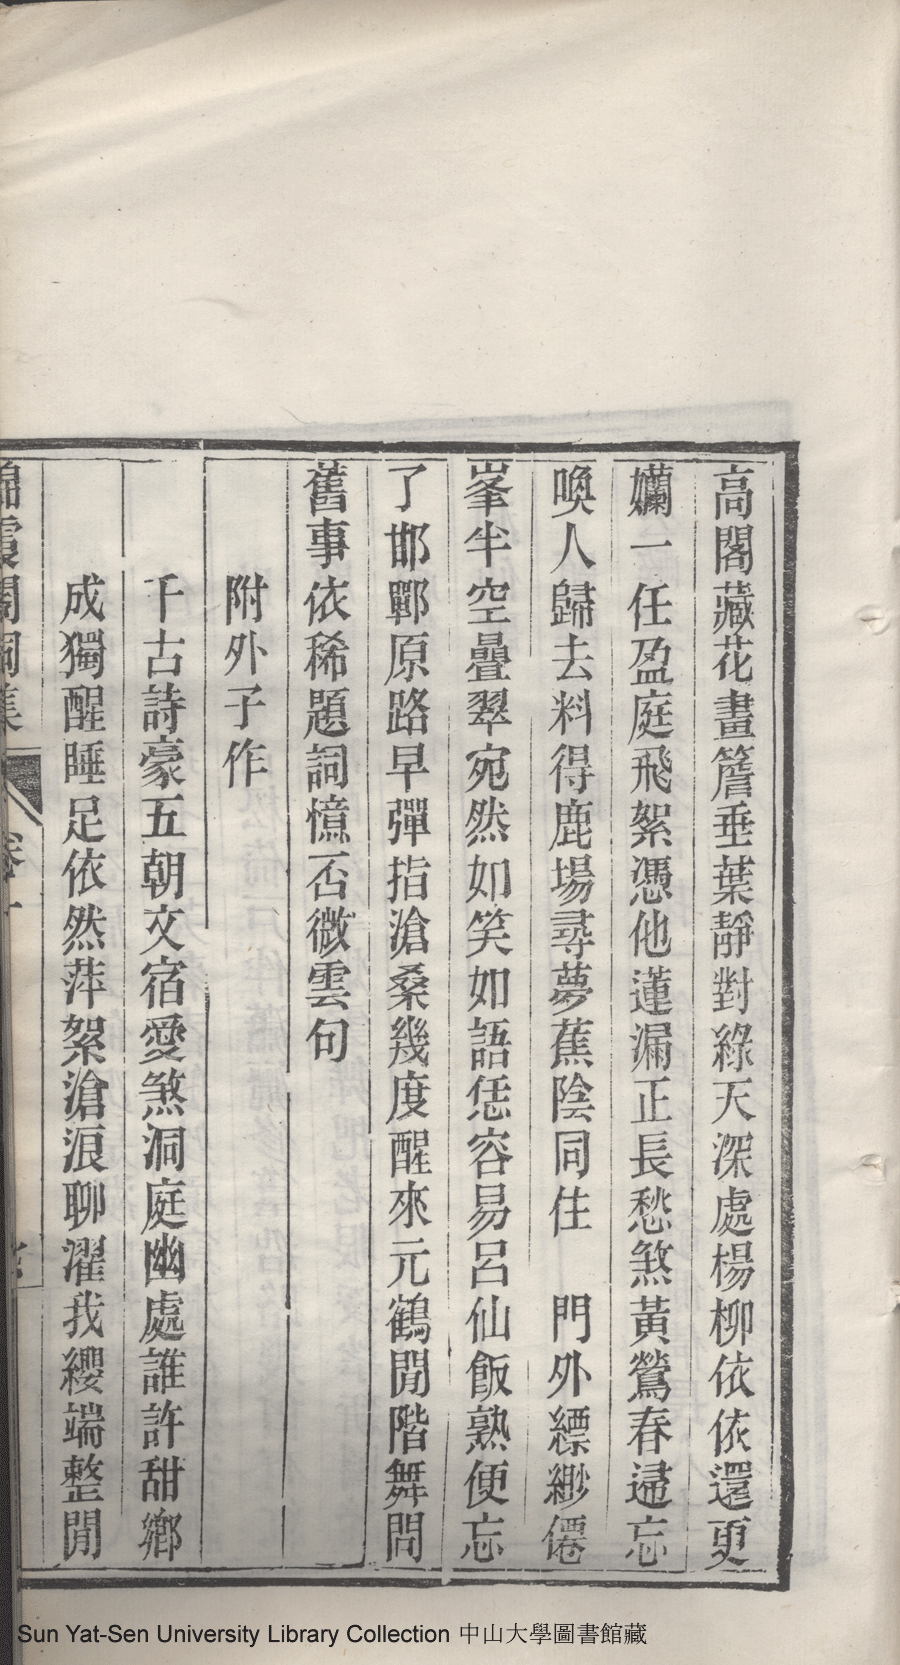 高閣藏花畫簷垂葉靜對綠天深處楊柳依依還更
孄一任盈庭飛絮憑他蓮漏正長愁煞黃鶯春逋忘
喚人歸去料得鹿場尋夢蕉陰同住　門外縹緲僊
峯半空疊翠宛然如笑如語恁容易呂仙飯熟便忘
了邯鄲原路早彈指滄桑幾度醒來元鶴閒階舞問
舊事依稀題詞憶否微雲句
附外子作
千古詩豪五朝文宿愛煞洞庭幽處誰許甜鄉
成獨醒睡足依然萍絮滄浪聊濯我纓端整閒
錦霞閣詞集　卷一
Sun Yat-Sen University Library Collection 中山大學圖書館藏